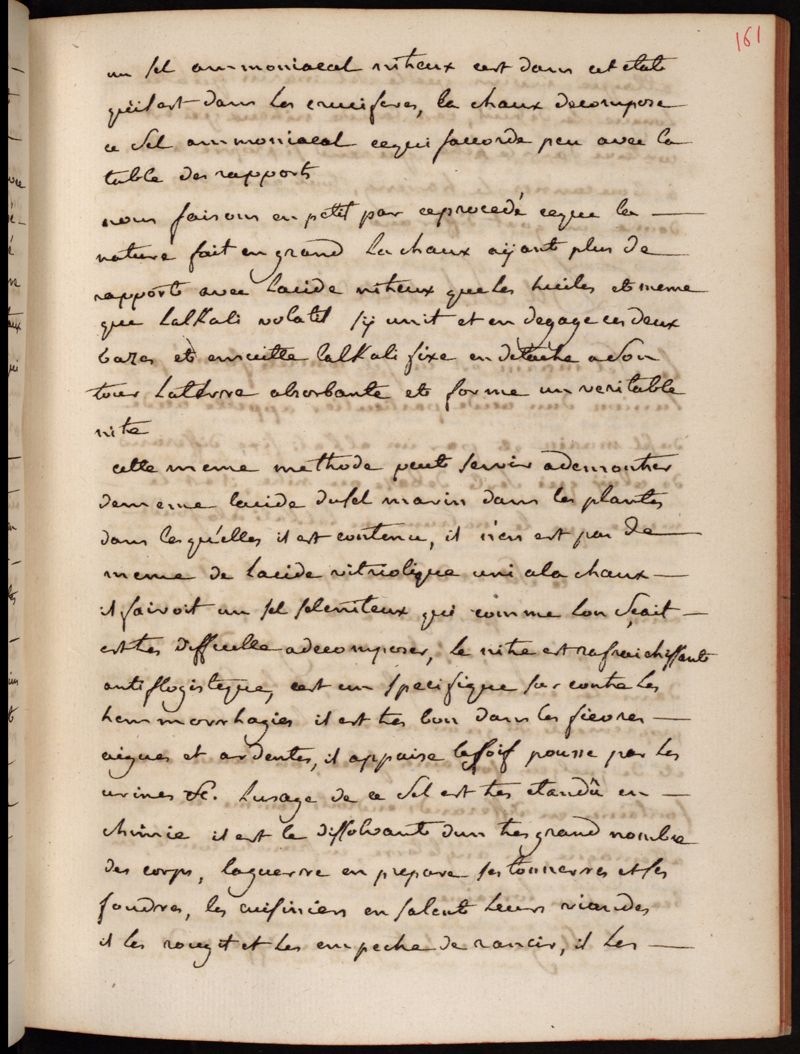 161
un sel ammoniacal nitreux cest dans cet etat
quil est dans les cruciferes, la chaux decompose
ce sel ammoniacal cequi saccorde peu avec la
table des rapports
nous faisons en petit par ceprocedé ceque la —
nature fait en grand la chaux aÿant plus de
rapports avec lacide nitreux que les huiles et meme
que lalkali volatil sÿ unit et en degage ces deux
bazes et ensuitte lalkali fixe en detache a son
tour laterre absorbante et forme un veritable
nitre
cette meme methode peut servir ademontrer
dememe lacide dusel marin dans les plantes
dans lesquelles il est contenu, il nen est pas de —
meme de lacide vitriolique uni ala chaux —
il fairoit un sel seleniteux qui comme lon sçait —
est tres difficille adecomposer, le nitre est rafraichissant
antiflogistique, cest un specifique sur contre les
hemmorrhagies il est tres bon dans les fievres —
aigues et ardentes, il appaise la soif pousse par les
urines &c. lusage de ce sel est tres etandû en —
chimie il est le dissolvant dun tres grand nombre
des corps, laguerre en prepare ses tonnerres et ses
foudres, les cuisiniers en salent leurs viandes
il les rougit et les empeche de rancir, il les —